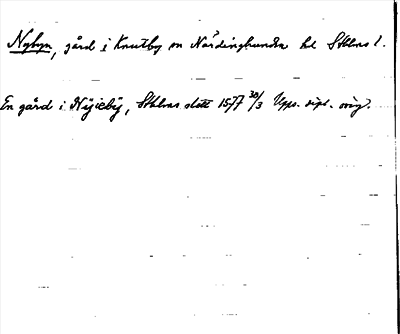 Nybyn, gård i Knutby sn Närdinghundra hd Sthlms l.
En gård i Nyieby, Sthlms slott 1577 30/3 Upps. dipl. orig.